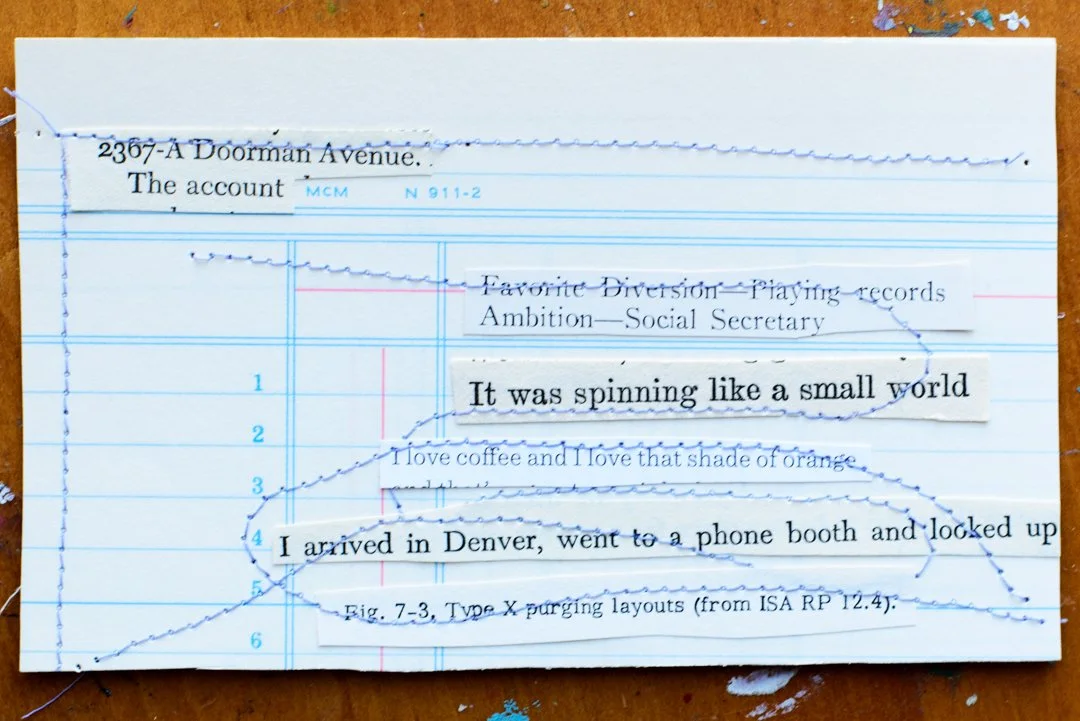 2367-A Doorman Avenue.
The account
MCM N 911-2
Favorite Diversion—Playing records
Ambition—Social Secretary
1
It was spinning like a small world
2
I love coffee and I love that shade of orange
3
4
I arrived in Denver, went to a phone booth and looked up
5
Fig. 7-3, Type X purging layouts (from ISA RP 12.4).
6